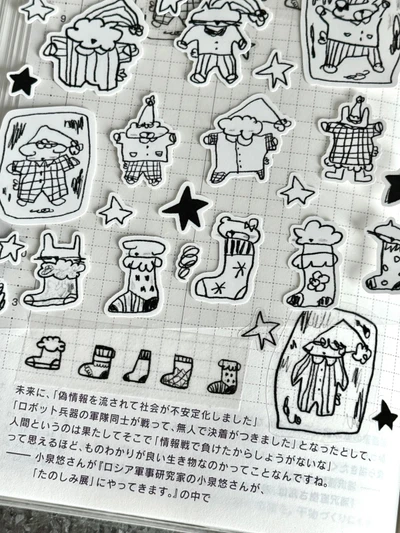 9
3
未来に、「偽情報を流されて社会が不安定化しました」
「ロボット兵器の軍隊同士が戦って、無人で決着がつきました」となったとして、
人間というのは果たしてそこで「情報戦で負けたからしょうがないな」
って思えるほど、ものわかりが良い生き物なのかってことなんですね。
―― 小泉悠さんが『ロシア軍事研究家の小泉悠さんが、
「たのしみ展」にやってきます。』の中で